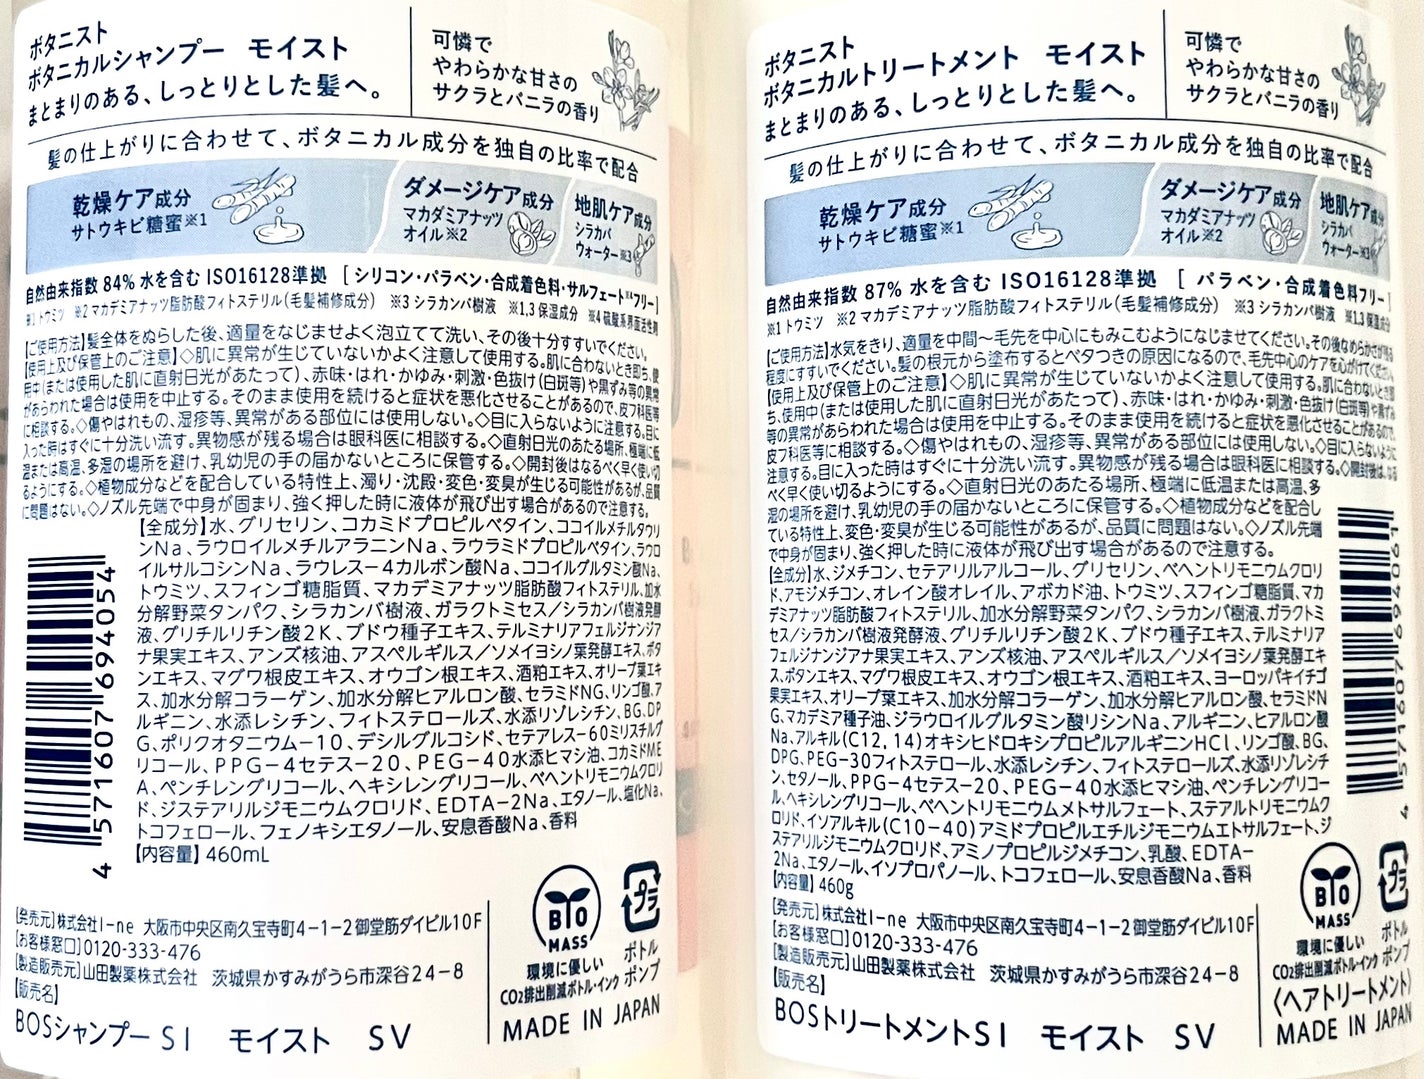 ボタニスト
ボタニカルシャンプー モイスト
まとまりのある、しっとりとした髪へ。
可憐で
やわらかな甘さの
サクラとバニラの香り
髪の仕上がりに合わせて、ボタニカル成分を独自の比率で配合
乾燥ケア成分
サトウキビ糖蜜※1
ダメージケア成分
マカダミアナッツ
オイル※2
地肌ケア成分
シラカバ
ウォーター※3
自然由来指数 84% 水を含む ISO16128準拠 [シリコン・パラベン・合成着色料・サルフェート※4フリー]
※1 トウミツ ※2 マカデミアナッツ脂肪酸フィトステリル(毛髪補修成分) ※3 シラカンバ樹液 ※1,3 保湿成分 ※4 硫酸系界面活性剤
【ご使用方法】髪全体をぬらした後、適量をなじませよく泡立てて洗い、その後十分すすいでください。
【使用上及び保管上のご注意】◇肌に異常が生じていないかよく注意して使用する。肌に合わないとき即ち、使
用中(または使用した肌に直射日光があたって)、赤味・はれ・かゆみ・刺激・色抜け(白斑等)や黒ずみ等の異常
があらわれた場合は使用を中止する。そのまま使用を続けると症状を悪化させることがあるので、皮フ科医等
に相談する。◇傷やはれもの、湿疹等、異常がある部位には使用しない。◇目に入らないように注意する。目に
入った時はすぐに十分洗い流す。異物感が残る場合は眼科医に相談する。◇直射日光のあたる場所、極端に低
温または高温、多湿の場所を避け、乳幼児の手の届かないところに保管する。◇開封後はなるべく早く使い切
るようにする。◇植物成分などを配合している特性上、濁り・沈殿・変色・変臭が生じる可能性があるが、品質
に問題はない。◇ノズル先端で中身が固まり、強く押した時に液体が飛び出す場合があるので注意する。
【全成分】水、グリセリン、コカミドプロピルベタイン、ココイルメチルタウリ
ンNa、ラウロイルメチルアラニンNa、ラウラミドプロピルベタイン、ラウロ
イルサルコシンNa、ラウレス-4カルボン酸Na、ココイルグルタミン酸Na、
トウミツ、スフィンゴ糖脂質、マカデミアナッツ脂肪酸フィトステリル、加水
分解野菜タンパク、シラカンバ樹液、ガラクトミセス/シラカンバ樹液発酵
液、グリチルリチン酸2K、ブドウ種子エキス、テルミナリアフェルジナンジア
ナ果実エキス、アンズ核油、アスペルギルス/ソメイヨシノ葉発酵エキス、ボタ
ンエキス、マグワ根皮エキス、オウゴン根エキス、酒粕エキス、オリーブ葉エキ
ス、加水分解コラーゲン、加水分解ヒアルロン酸、セラミドNG、リンゴ酸、ア
ルギニン、水添レシチン、フィトステロールズ、水添リゾレシチン、BG、DP
G、ポリクオタニウム-10、デシルグルコシド、セテアレス-60ミリスチルグ
リコール、PPG-4セテス-20、PEG-40水添ヒマシ油、コカミドME
A、ペンチレングリコール、ヘキシレングリコール、ベヘントリモニウムクロリ
ド、ジステアリルジモニウムクロリド、EDTA-2Na、エタノール、塩化Na、
トコフェロール、フェノキシエタノール、安息香酸Na、香料
【内容量】460mL
4 571607 694054
【発売元】株式会社I-ne 大阪市中央区南久宝寺町4-1-2 御堂筋ダイビル10F
【お客様窓口】0120-333-476
【製造販売元】山田製薬株式会社 茨城県かすみがうら市深谷24-8
【販売名】
BOSシャンプーSI モイスト SV
BIO
MASS
環境に優しい
CO2排出削減ボトル・インク
プラ
ボトル
ポンプ
MADE IN JAPAN
ボタニスト
ボタニカルトリートメント モイスト
まとまりのある、しっとりとした髪へ。
可憐で
やわらかな甘さの
サクラとバニラの香り
髪の仕上がりに合わせて、ボタニカル成分を独自の比率で配合
乾燥ケア成分
サトウキビ糖蜜※1
ダメージケア成分
マカダミアナッツ
オイル※2
地肌ケア成分
シラカバ
ウォーター※3
自然由来指数 87% 水を含む ISO16128準拠 [パラベン・合成着色料フリー]
※1 トウミツ ※2 マカデミアナッツ脂肪酸フィトステリル(毛髪補修成分) ※3 シラカンバ樹液 ※1,3 保湿成分
【ご使用方法】水気をきり、適量を中間~毛先を中心にもみこむようになじませてください。その後なめらかさが残る
程度にすすいでください。髪の根元から塗布するとベタつきの原因になるので、毛先中心のケアを心がけてください。
【使用上及び保管上のご注意】◇肌に異常が生じていないかよく注意して使用する。肌に合わないとき即
ち、使用中(または使用した肌に直射日光があたって)、赤味・はれ・かゆみ・刺激・色抜け(白斑等)や黒ずみ
等の異常があらわれた場合は使用を中止する。そのまま使用を続けると症状を悪化させることがあるので、
皮フ科医等に相談する。◇傷やはれもの、湿疹等、異常がある部位には使用しない。◇目に入らないように
注意する。目に入った時はすぐに十分洗い流す。異物感が残る場合は眼科医に相談する。◇開封後はなる
べく早く使い切るようにする。◇直射日光のあたる場所、極端に低温または高温、多
湿の場所を避け、乳幼児の手の届かないところに保管する。◇植物成分などを配合し
ている特性上、変色・変臭が生じる可能性があるが、品質に問題はない。◇ノズル先端
で中身が固まり、強く押した時に液体が飛び出す場合があるので注意する。
【全成分】水、ジメチコン、セテアリルアルコール、グリセリン、ベヘントリモニウムクロリ
ド、アモジメチコン、オレイン酸オレイル、アボカド油、トウミツ、スフィンゴ糖脂質、マカ
デミアナッツ脂肪酸フィトステリル、加水分解野菜タンパク、シラカンバ樹液、ガラクトミ
セス/シラカンバ樹液発酵液、グリチルリチン酸2K、ブドウ種子エキス、テルミナリア
フェルジナンジアナ果実エキス、アンズ核油、アスペルギルス/ソメイヨシノ葉発酵エキ
ス、ボタンエキス、マグワ根皮エキス、オウゴン根エキス、酒粕エキス、ヨーロッパキイチゴ
果実エキス、オリーブ葉エキス、加水分解コラーゲン、加水分解ヒアルロン酸、セラミドN
G、マカデミア種子油、ジラウロイルグルタミン酸リシンNa、アルギニン、ヒアルロン酸
Na、アルキル(C12,14)オキシヒドロキシプロピルアルギニンHCl、リンゴ酸、BG、
DPG、PEG-30フィトステロール、水添レシチン、フィトステロールズ、水添リゾレシチ
ン、セタノール、PPG-4セテス-20、PEG-40水添ヒマシ油、ペンチレングリコー
ル、ヘキシレングリコール、ベヘントリモニウムメトサルフェート、ステアルトリモニウムク
ロリド、イソアルキル(C10-40)アミドプロピルエチルジモニウムエトサルフェート、ジ
ステアリルジモニウムクロリド、アミノプロピルジメチコン、乳酸、EDTA-
2Na、エタノール、イソプロパノール、トコフェロール、安息香酸Na、香料
【内容量】460g
4 571607 694061
【発売元】株式会社I-ne 大阪市中央区南久宝寺町4-1-2 御堂筋ダイビル10F
【お客様窓口】0120-333-476
【製造販売元】山田製薬株式会社 茨城県かすみがうら市深谷24-8
【販売名】
BOSトリートメントSI モイスト SV
BIO
MASS
環境に優しい
CO2排出削減ボトル・インク
プラ
ボトル
ポンプ
〈ヘアトリートメント〉
MADE IN JAPAN